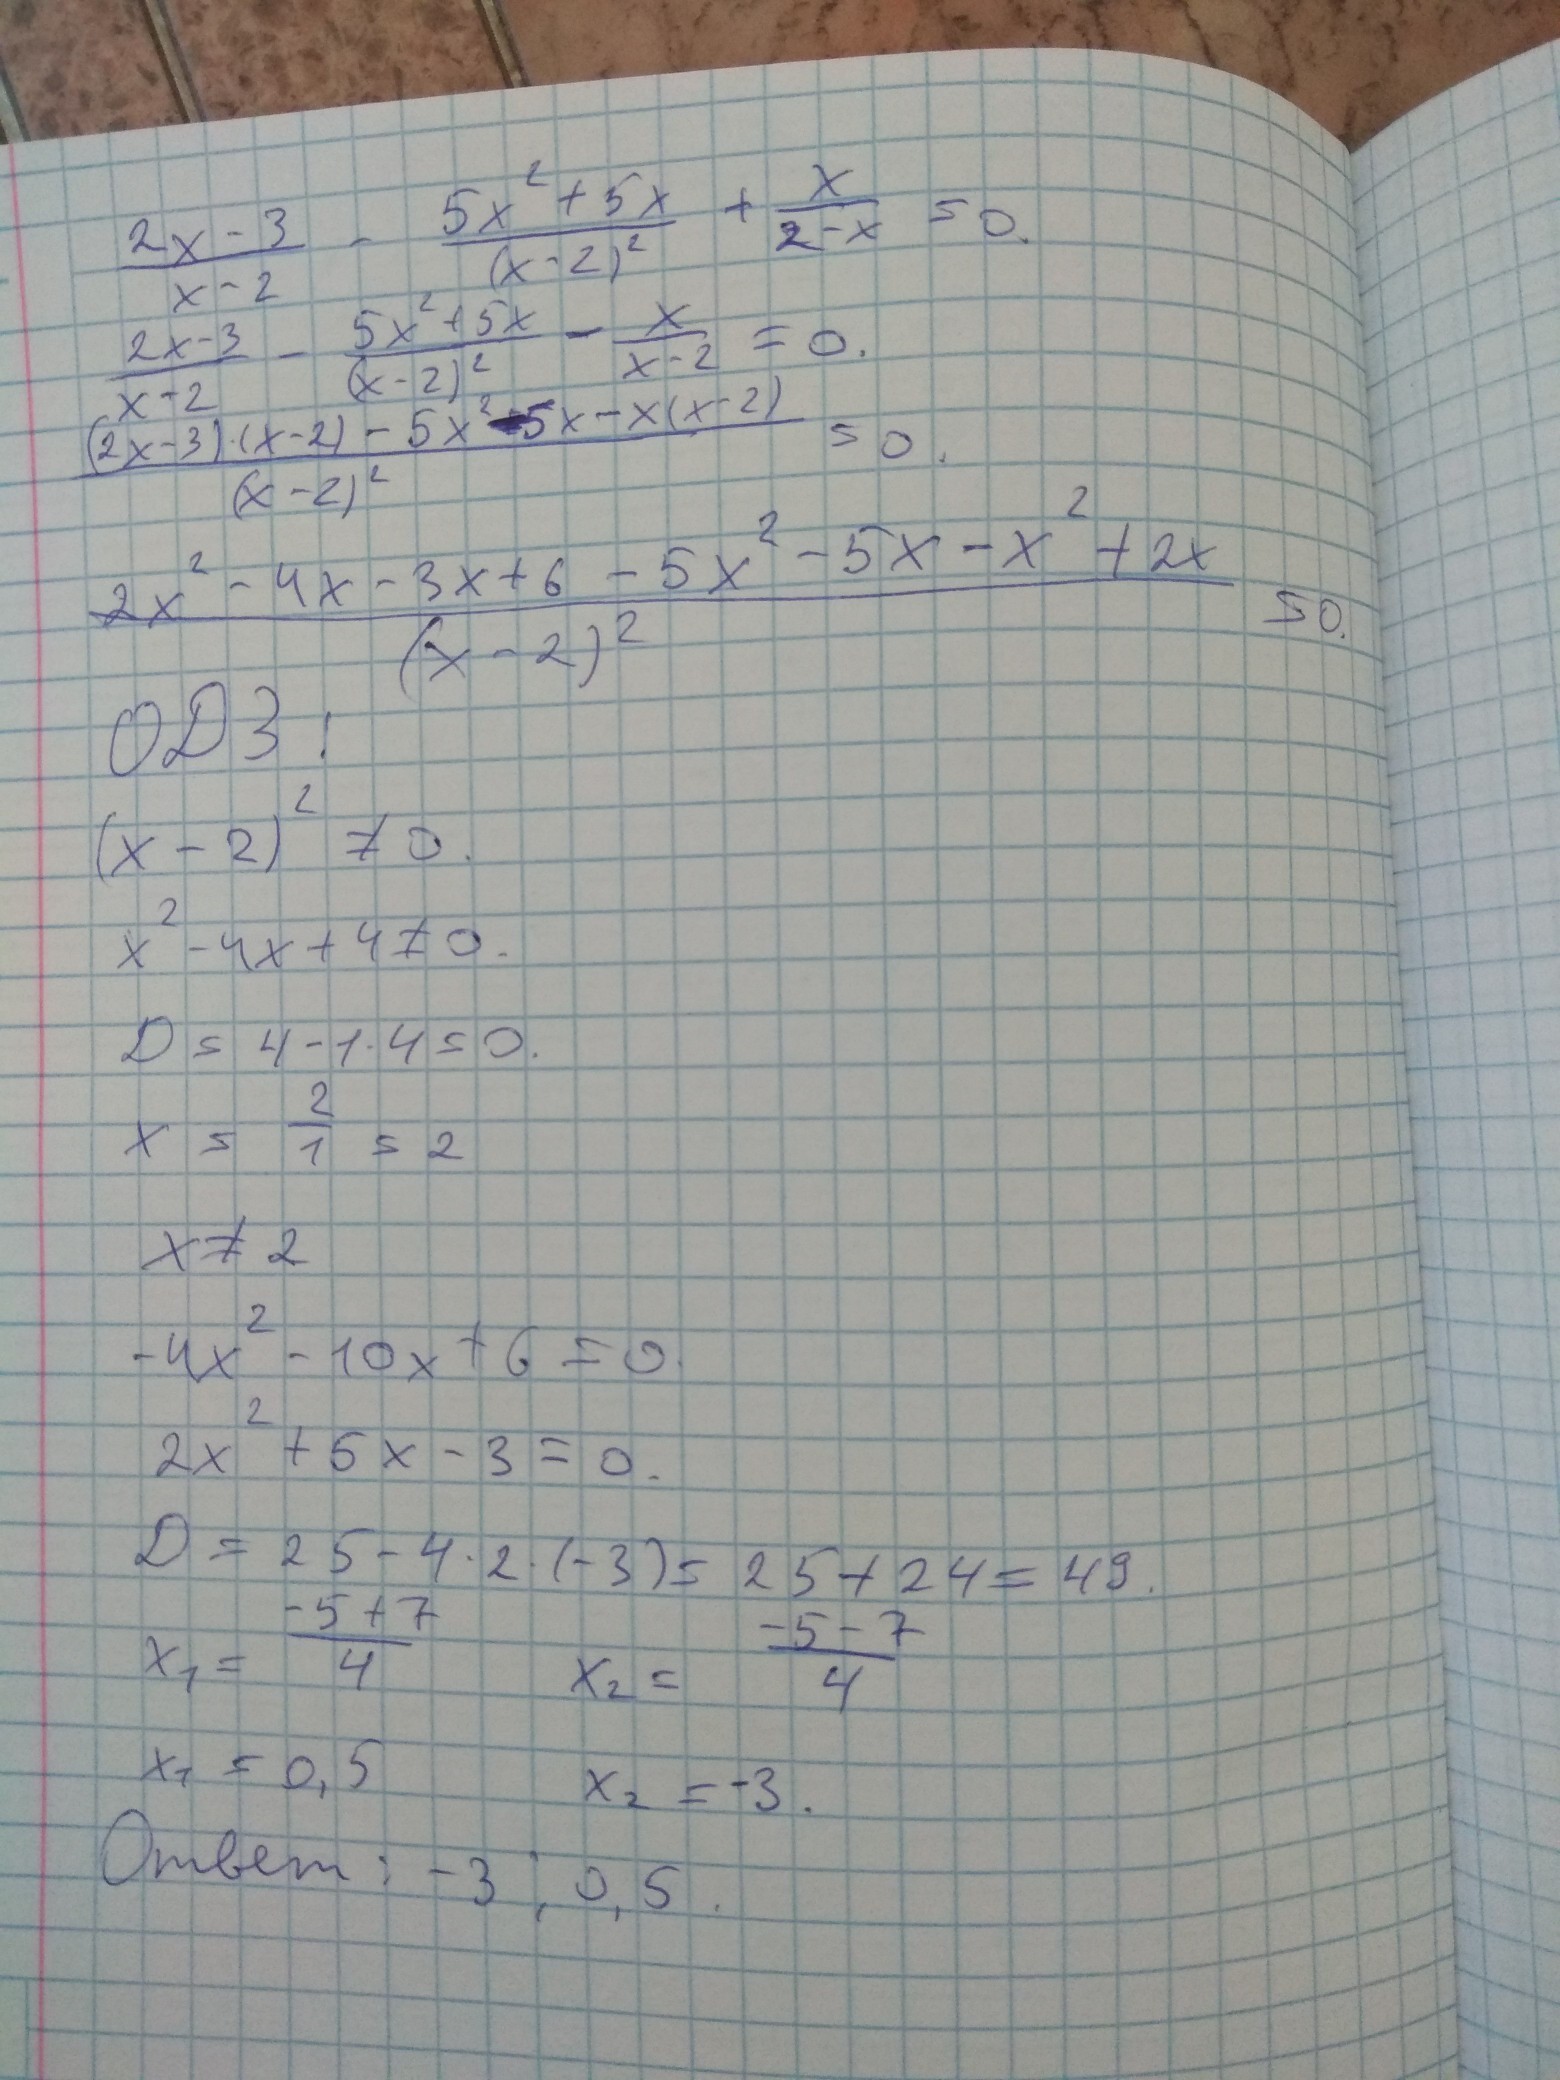 (2x-3)/(x-2) - (5x²+5x)/(x-2)² + x/(2-x) = 0.
(2x-3)/(x-2) - (5x²+5x)/(x-2)² - x/(x-2) = 0.
((2x-3)·(x-2) - 5x² - 5x - x(x-2))/(x-2)² = 0.
(2x² - 4x - 3x + 6 - 5x² - 5x - x² + 2x)/(x-2)² = 0.
ОДЗ:
(x-2)² ≠ 0.
x² - 4x + 4 ≠ 0.
D = 4 - 1·4 = 0.
x = 2/1 = 2
x ≠ 2
-4x² - 10x + 6 = 0.
2x² + 5x - 3 = 0.
D = 25 - 4·2·(-3) = 25 + 24 = 49.
x₁ = (-5+7)/4 x₂ = (-5-7)/4
x₁ = 0,5 x₂ = -3.
Ответ: -3; 0,5.